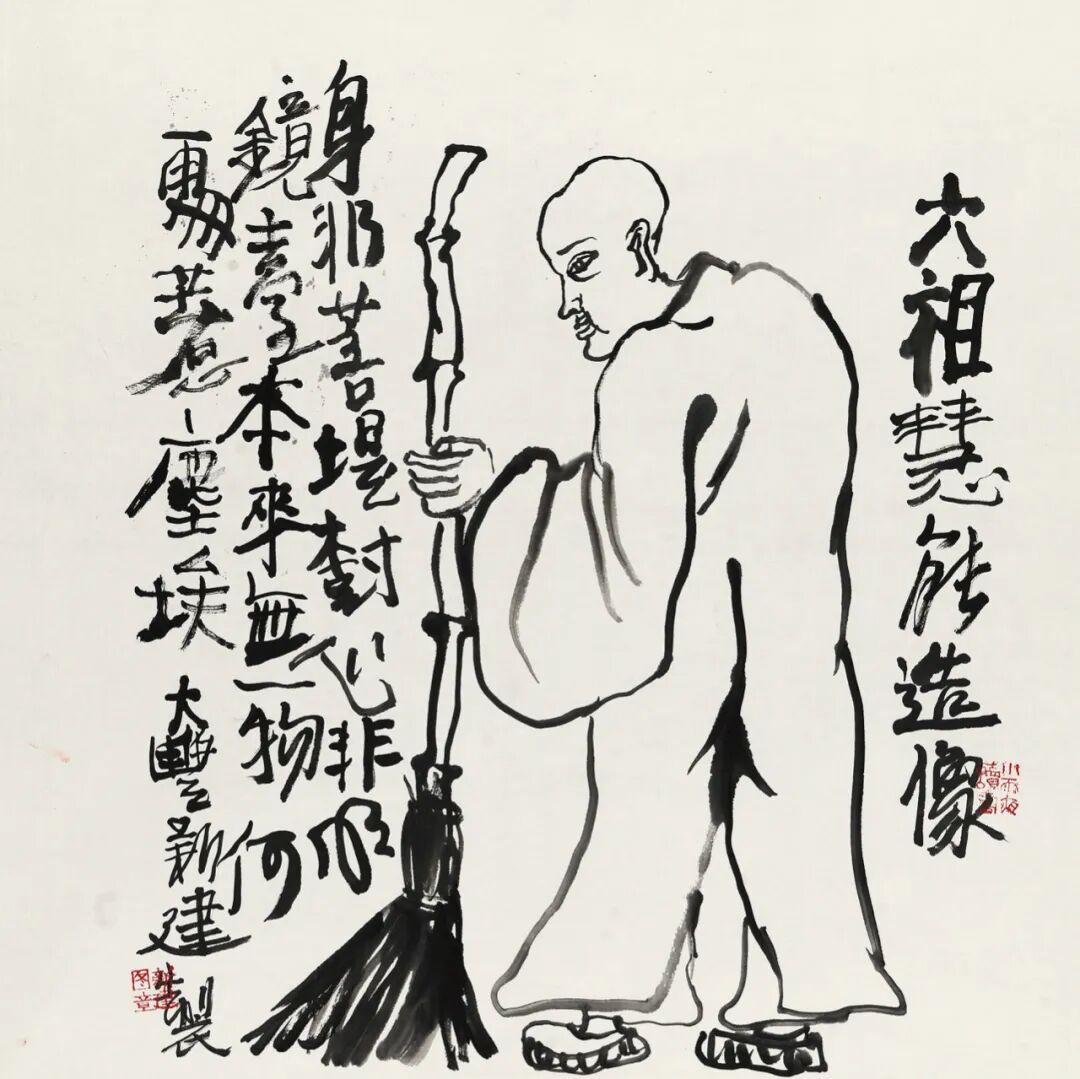 六祖慧能造像
身非菩堤樹心非明
鏡臺本來無一物何
惹塵埃
大豐新建製